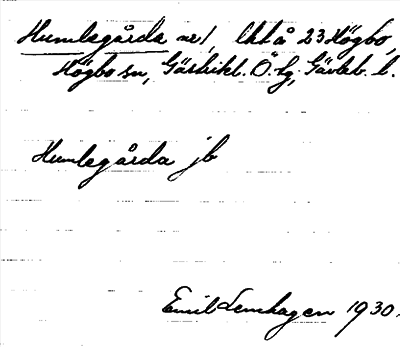 Humlegårda nr 1, lht å 23 Högbo,
Högbo sn, Gästrikl. Ö. tg, Gävleb. l.
Humlegårda jb
Emil Lenhagen 1930.